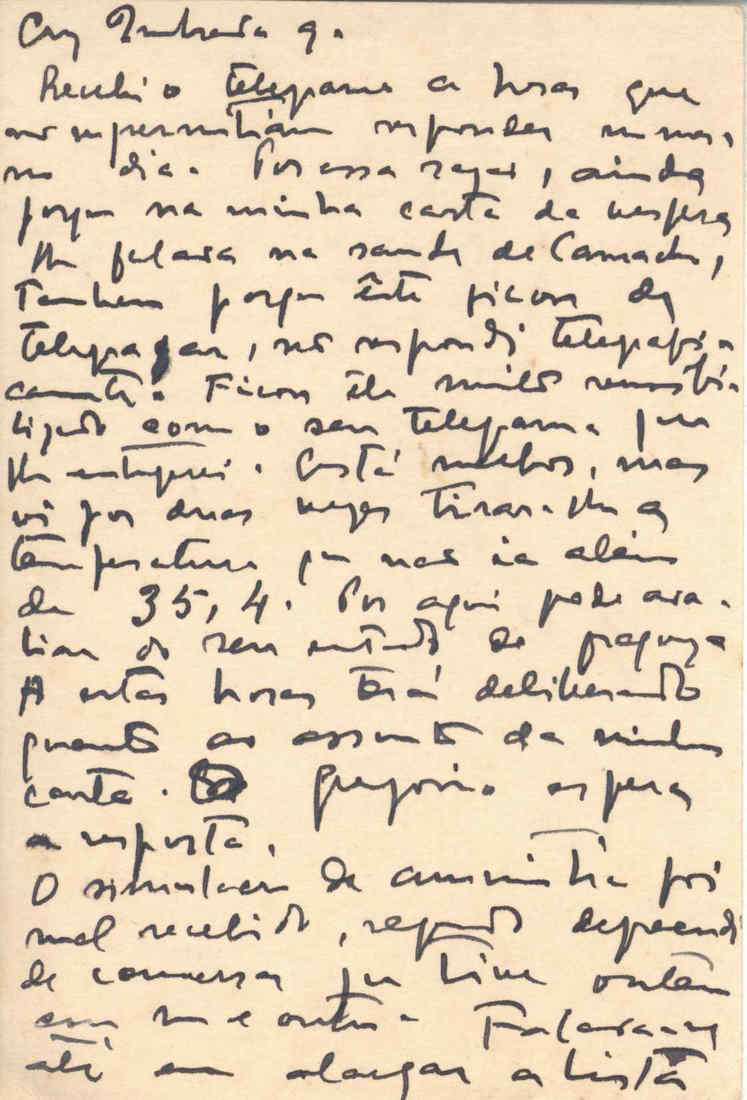 Cruz Quebrada 9.
Recebi o telegrama a horas que
não me permitiam responder no mes-
mo dia. Por essa razão, ainda
porque na minha carta da vespera
lhe falara na saude de Camacho,
tambem porque êste ficou de
telegrafar, não respondi telegrafi-
camente. Ficou êle muito sensibi-
lizado com o seu telegrama que
lhe entreguei. Está melhor, mas
vi por duas vezes tirar-lhe a
temperatura que não ia além
de 35,4. Por aqui pode ava-
liar do seu estado de fraqueza
A estas horas terá deliberado
quanto ao assunto da minha
carta. Gregorio espera
a resposta.
O simulacro de amnistia foi
mal recebido, segundo depreendi
de conversa que tive ontem
com um e outro. Falava-se
até em alargar a lista